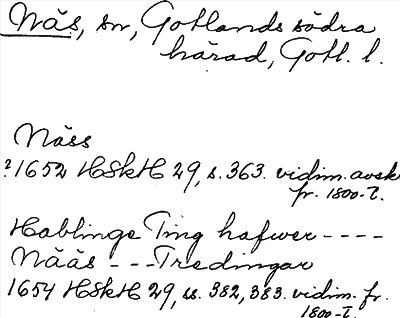 Näs, sn, Gotlands södra
härad, Gotl. l.
Näss
? 1652 HSkH 29, s. 363. vidim. avskr
fr. 1800-t.
Hablinge Ting hafwer ----
Nääs --- Tredingar
1654 HSkH 29, ss. 382, 383. vidim. fr.
1800-t.